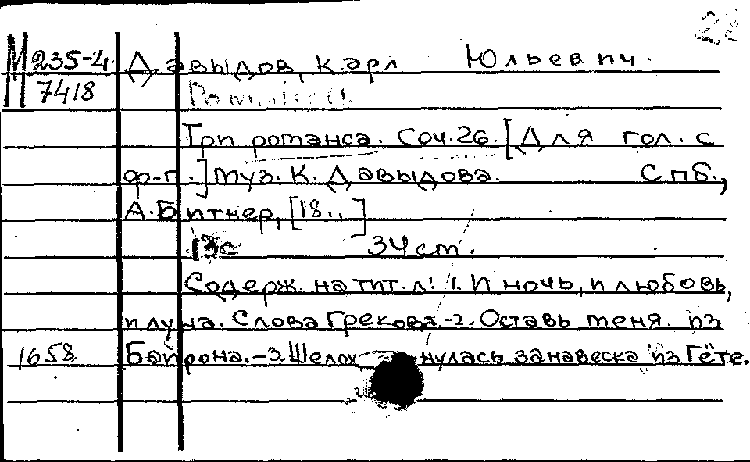 М 235-4 Давыдов, Карл Юльевич.
7418 Романсы
Три романса. Соч. 26. [Для гол. с
ф-п.] Муз. К. Давыдова. СПб.,
А. Битнер, [18..]
13с 34 ст.
Содерж. на тит. л: 1. И ночь, и любовь,
и луна. Слова Грекова.-2. Оставь меня. из
1658 Байрона.-3. Шелохнулась занавеска из Гёте.